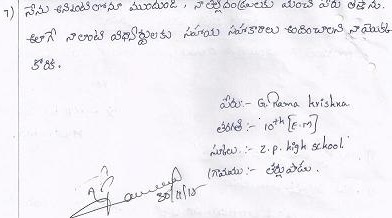 7) నేను అన్నింటిలోనూ ముందుండి, నా తల్లిదండ్రులకు మంచి పేరు తెస్తాను.
అలాగే నాలాంటి విద్యార్థులకు సహాయ సహకారాలు అందించాలని నా యొక్క
కోరిక.
పేరు:- G. Rama krishna
తరగతి:- 10th [E.M]
స్కూలు:- Z.p. high school.
గ్రామము:-
30/11/15